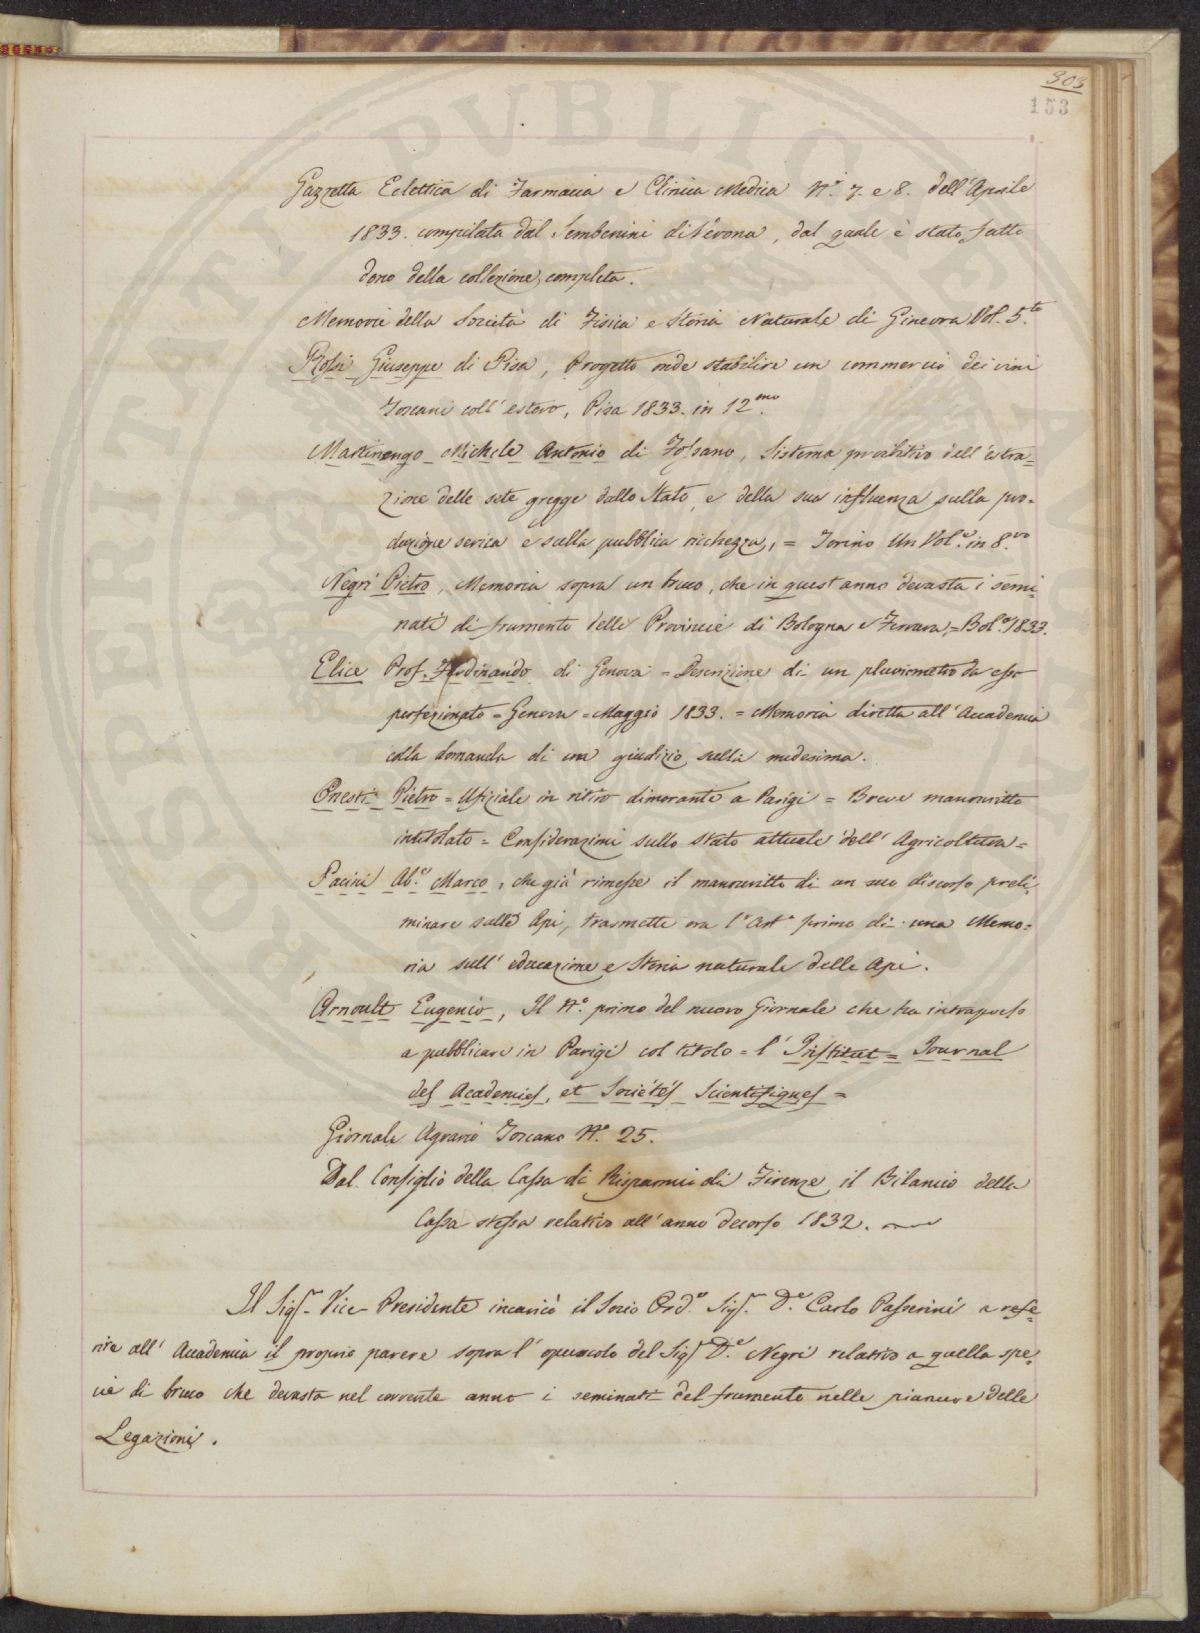 303
153
Gazzetta Eclettica di Farmacia e Clinica Medica N.i 7. e 8. dell'Aprile
1833. compilata dal Sembenini di Verona, dal quale è stato fatto
dono della collezione completa.
Memorie della Società di Fisica e Storia Naturale di Ginevra Vol. 5.to
Rossi Giuseppe di Pisa, Progetto onde stabilire un commercio dei vini
Toscani coll'estero, Pisa 1833. in 12.mo
Martinengo Michele Antonio di Fossano, Sistema proibitivo dell'estra=
zione delle sete gregge dallo Stato, e della sua influenza sulla pro=
duzione serica e sulla pubblica ricchezza, = Torino Un Vol.e in 8.vo
Negri Pietro, Memoria sopra un bruco, che in quest'anno devasta i semi=
nati di frumento delle Provincie di Bologna e Ferrara = Bol.a 1833.
Elice Prof. Ferdinando di Genova = Descrizione di un pluviometro da esso
perfezionato = Genova = Maggio 1833. = Memoria diretta all'Accademia
colla domanda di un giudizio sulla medesima.
Onesti Pietro = Ufiziale in ritiro dimorante a Parigi = Breve manoscritto
intitolato = Considerazioni sullo stato attuale dell'Agricoltura =
Pacini Ab.e Marco, che già rimesse il manoscritto di un suo discorso preli=
minare sulle Api, trasmette ora l'Art.o primo di una Memo=
ria sull'educazione e Storia naturale delle Api.
Arnoult Eugenio, Il N.o primo del nuovo Giornale che ha intrapreso
a pubblicare in Parigi col titolo = l'Institut = Journal
des Academies, et Sociétés Scientifiques =
Giornale Agrario Toscano N.o 25.
Dal Consiglio della Cassa di Risparmio di Firenze il Bilancio della
Cassa stessa relativo all'anno decorso 1832.
Il Sig.r Vice-Presidente incaricò il Socio Ord.o Sig.r D.e Carlo Passerini a refe=
rire all'Accademia il proprio parere sopra l'opuscolo del Sig.r D.e Negri relativo a quella spe=
cie di bruco che devasta nel corrente anno i seminati del frumento nelle pianure delle
Legazioni.